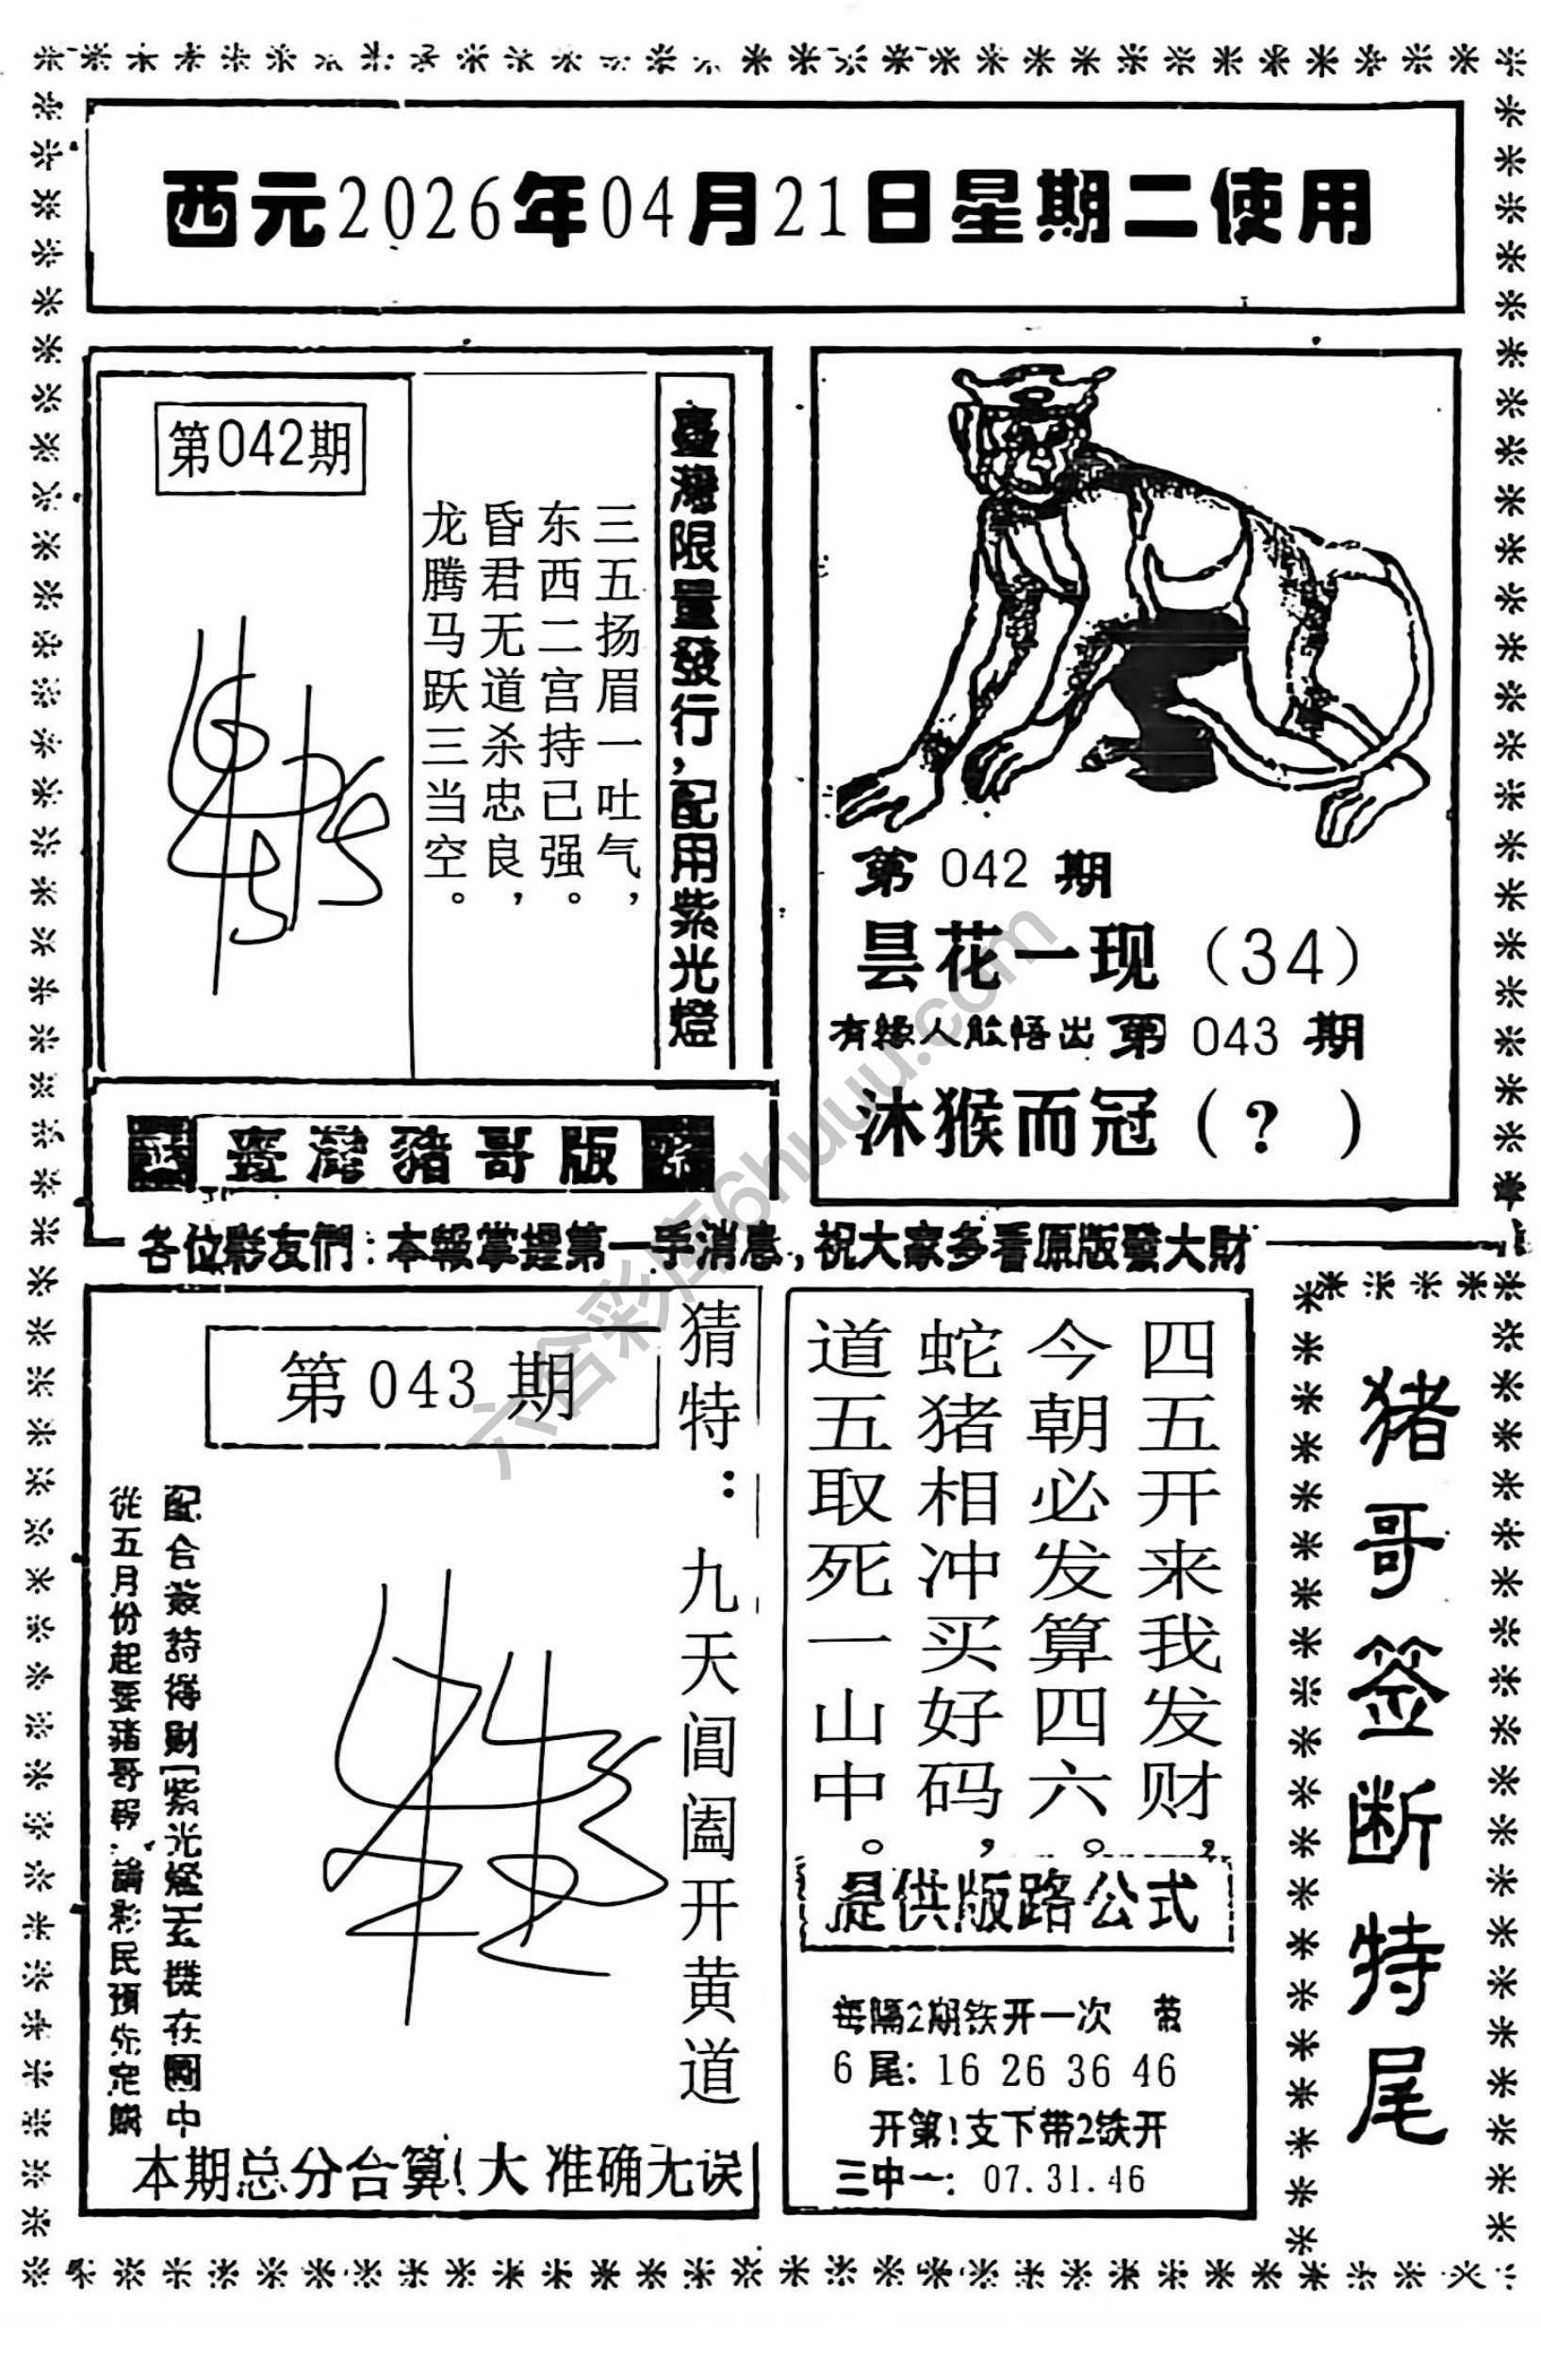 西元2026年04月21日星期二使用
第042期
三五扬眉一吐气，
东西二宫持已强。
昏君无道杀忠良，
龙腾马跃三当空。
臺灣限量發行，配用紫光燈
臺灣豬哥版
第 042 期
昙花一现（34）
有緣人能悟出第 043 期
沐猴而冠（？）
各位彩友們：本報掌握第一手消息，祝大家多看原版發大財
第 043 期
猜特：九天閶阖开黄道
配合叢詩得財[紫光燈]玄機在圖中
從五月份起要豬哥報，請彩民預先定購
本期总分合算！大 准确无误
四五开来我发财，
今朝必发算四六。
蛇猪相冲买好码，
道五取死一山中。
提供版路公式
每隔2期铁开一次
6尾：16 26 36 46
开第！支下带2铁开
三中一：07.31.46
猪哥签断特尾
六合彩库6huuu.com